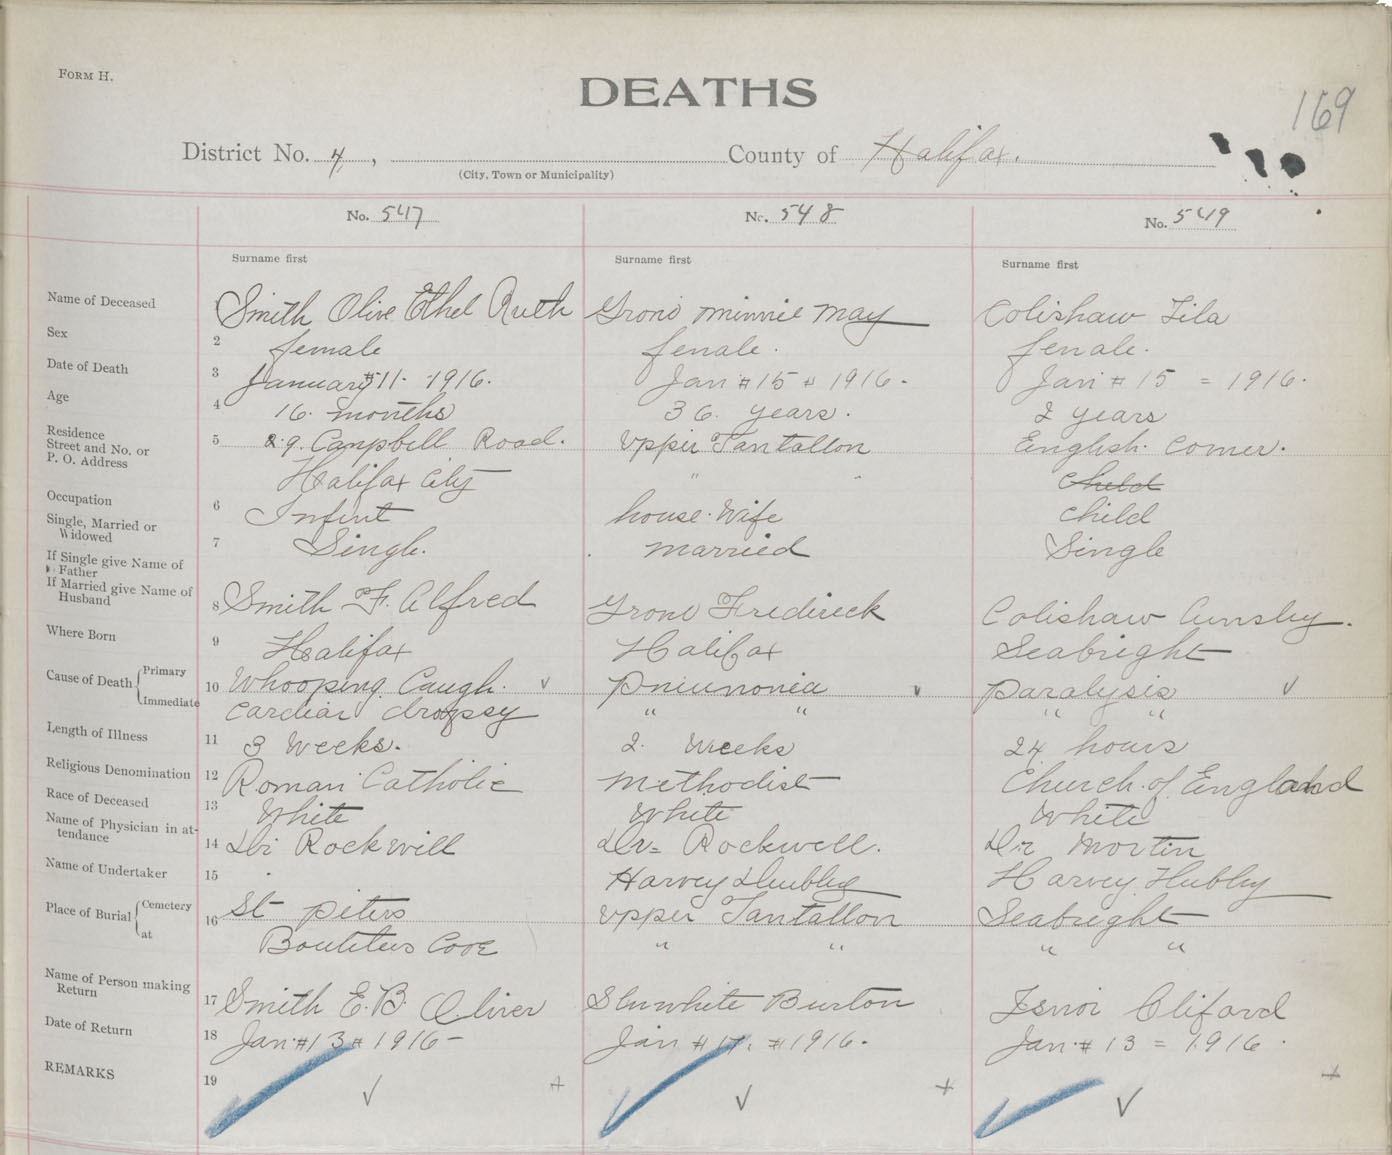 FORM H.
DEATHS
169
District No. 4, County of Halifax.
(City, Town or Municipality)
No. 547 No. 548 No. 549
Surname first Surname first Surname first
Name of Deceased 1 Smith Olive Ethel Ruth Grono Minnie May Colishaw Lila
Sex 2 female female. female.
Date of Death 3 January #11- 1916. Jan # 15 # 1916. Jan # 15 = 1916.
Age 4 16. months 36. years. 2 years
Residence
Street and No. or 5 29. Campbell Road. Upper Tantallon English Corner.
P. O. Address
Halifax City " " Child
Occupation 6 Infint house Wife child
Single, Married or
Widowed 7 Single. married Single
If Single give Name of
Father
If Married give Name of
Husband 8 Smith F. Alfred Grono Fredireck Colishaw Ainsley.
Where Born 9 Halifax Halifax Seabright
Cause of Death Primary 10 Whooping Caugh. Pniumonia Paralysis
Immediate Cardiac dropsy " " " "
Length of Illness 11 3 Weeks. 2. Weeks 24 hours
Religious Denomination 12 Roman Catholic Methodist Church of England
Race of Deceased 13 White White White
Name of Physician in at-
tendance 14 Dr Rockwill Dr= Rockwell. Dr Mortin
Name of Undertaker 15 Harvey Hubley Harvey Hubley
Place of Burial Cemetery 16 St Peters Upper Tantallon Seabright
at Boutiliers Cove " " " "
Name of Person making
Return 17 Smith E. B. Oliver Shuwhite Burton Isnor Cliford
Date of Return 18 Jan # 13 # 1916- Jan # 17. # 1916. Jan # 13 = 1916.
REMARKS 19